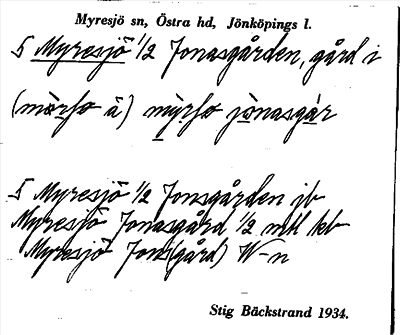 Myresjö sn, Östra hd, Jönköpings l.
5 Myresjö 1/2 Jonasgården, gård i
5 Myresjö 1/2 Jonsgården jb
Myresjö Jonasgård 1/2 mtl kb
Myresjö Jon(gård) W-n
Stig Bäckstrand 1934.